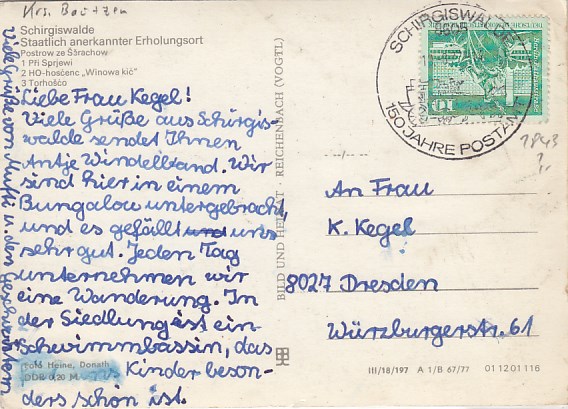 Krs. Bautzen
Schirgiswalde
Staatlich anerkannter Erholungsort
Postrow ze Šěrachow
1 Při Sprjewi
2 HO-hosćenc „Winowa kić“
3 Torhošćo
Liebe Frau Kegel!
Viele Grüße aus Schirgis-
walde sendet Ihnen
Antje Windelband. Wir
sind hier in einem
Bungalou untergebracht,
und es gefällt und uns
sehr gut. Jeden Tag
unternehmen wir
eine Wanderung. In
der Siedlung ist ein
Schwimmbassin, das
Kinder beson-
ders schön ist.
Foto Heine, Donath
DDR 0,20 M
Viele Grüße von Mutti u. den Geschwistern
BILD UND HEIMAT · REICHENBACH (VOGTL)
SCHIRGISWALDE
150 JAHRE POSTAMT
10
1843
?
An Frau
K. Kegel
8027 Dresden
Würzburgerstr. 61
III/18/197 A 1/B 67/77 01 12 01 116